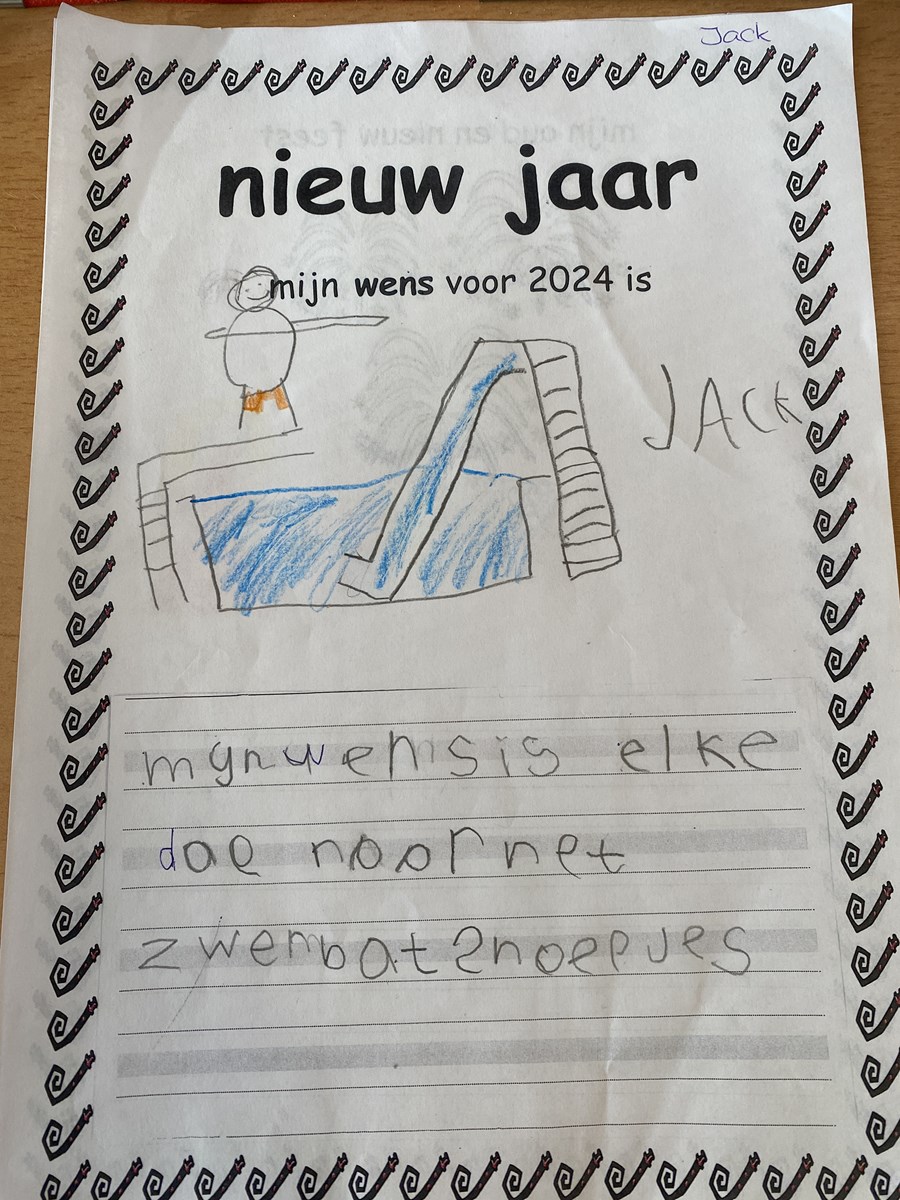 Jack
nieuw jaar
mijn wens voor 2024 is
JACK
mynwens is elke
dae noor net
zwembat snoepjes